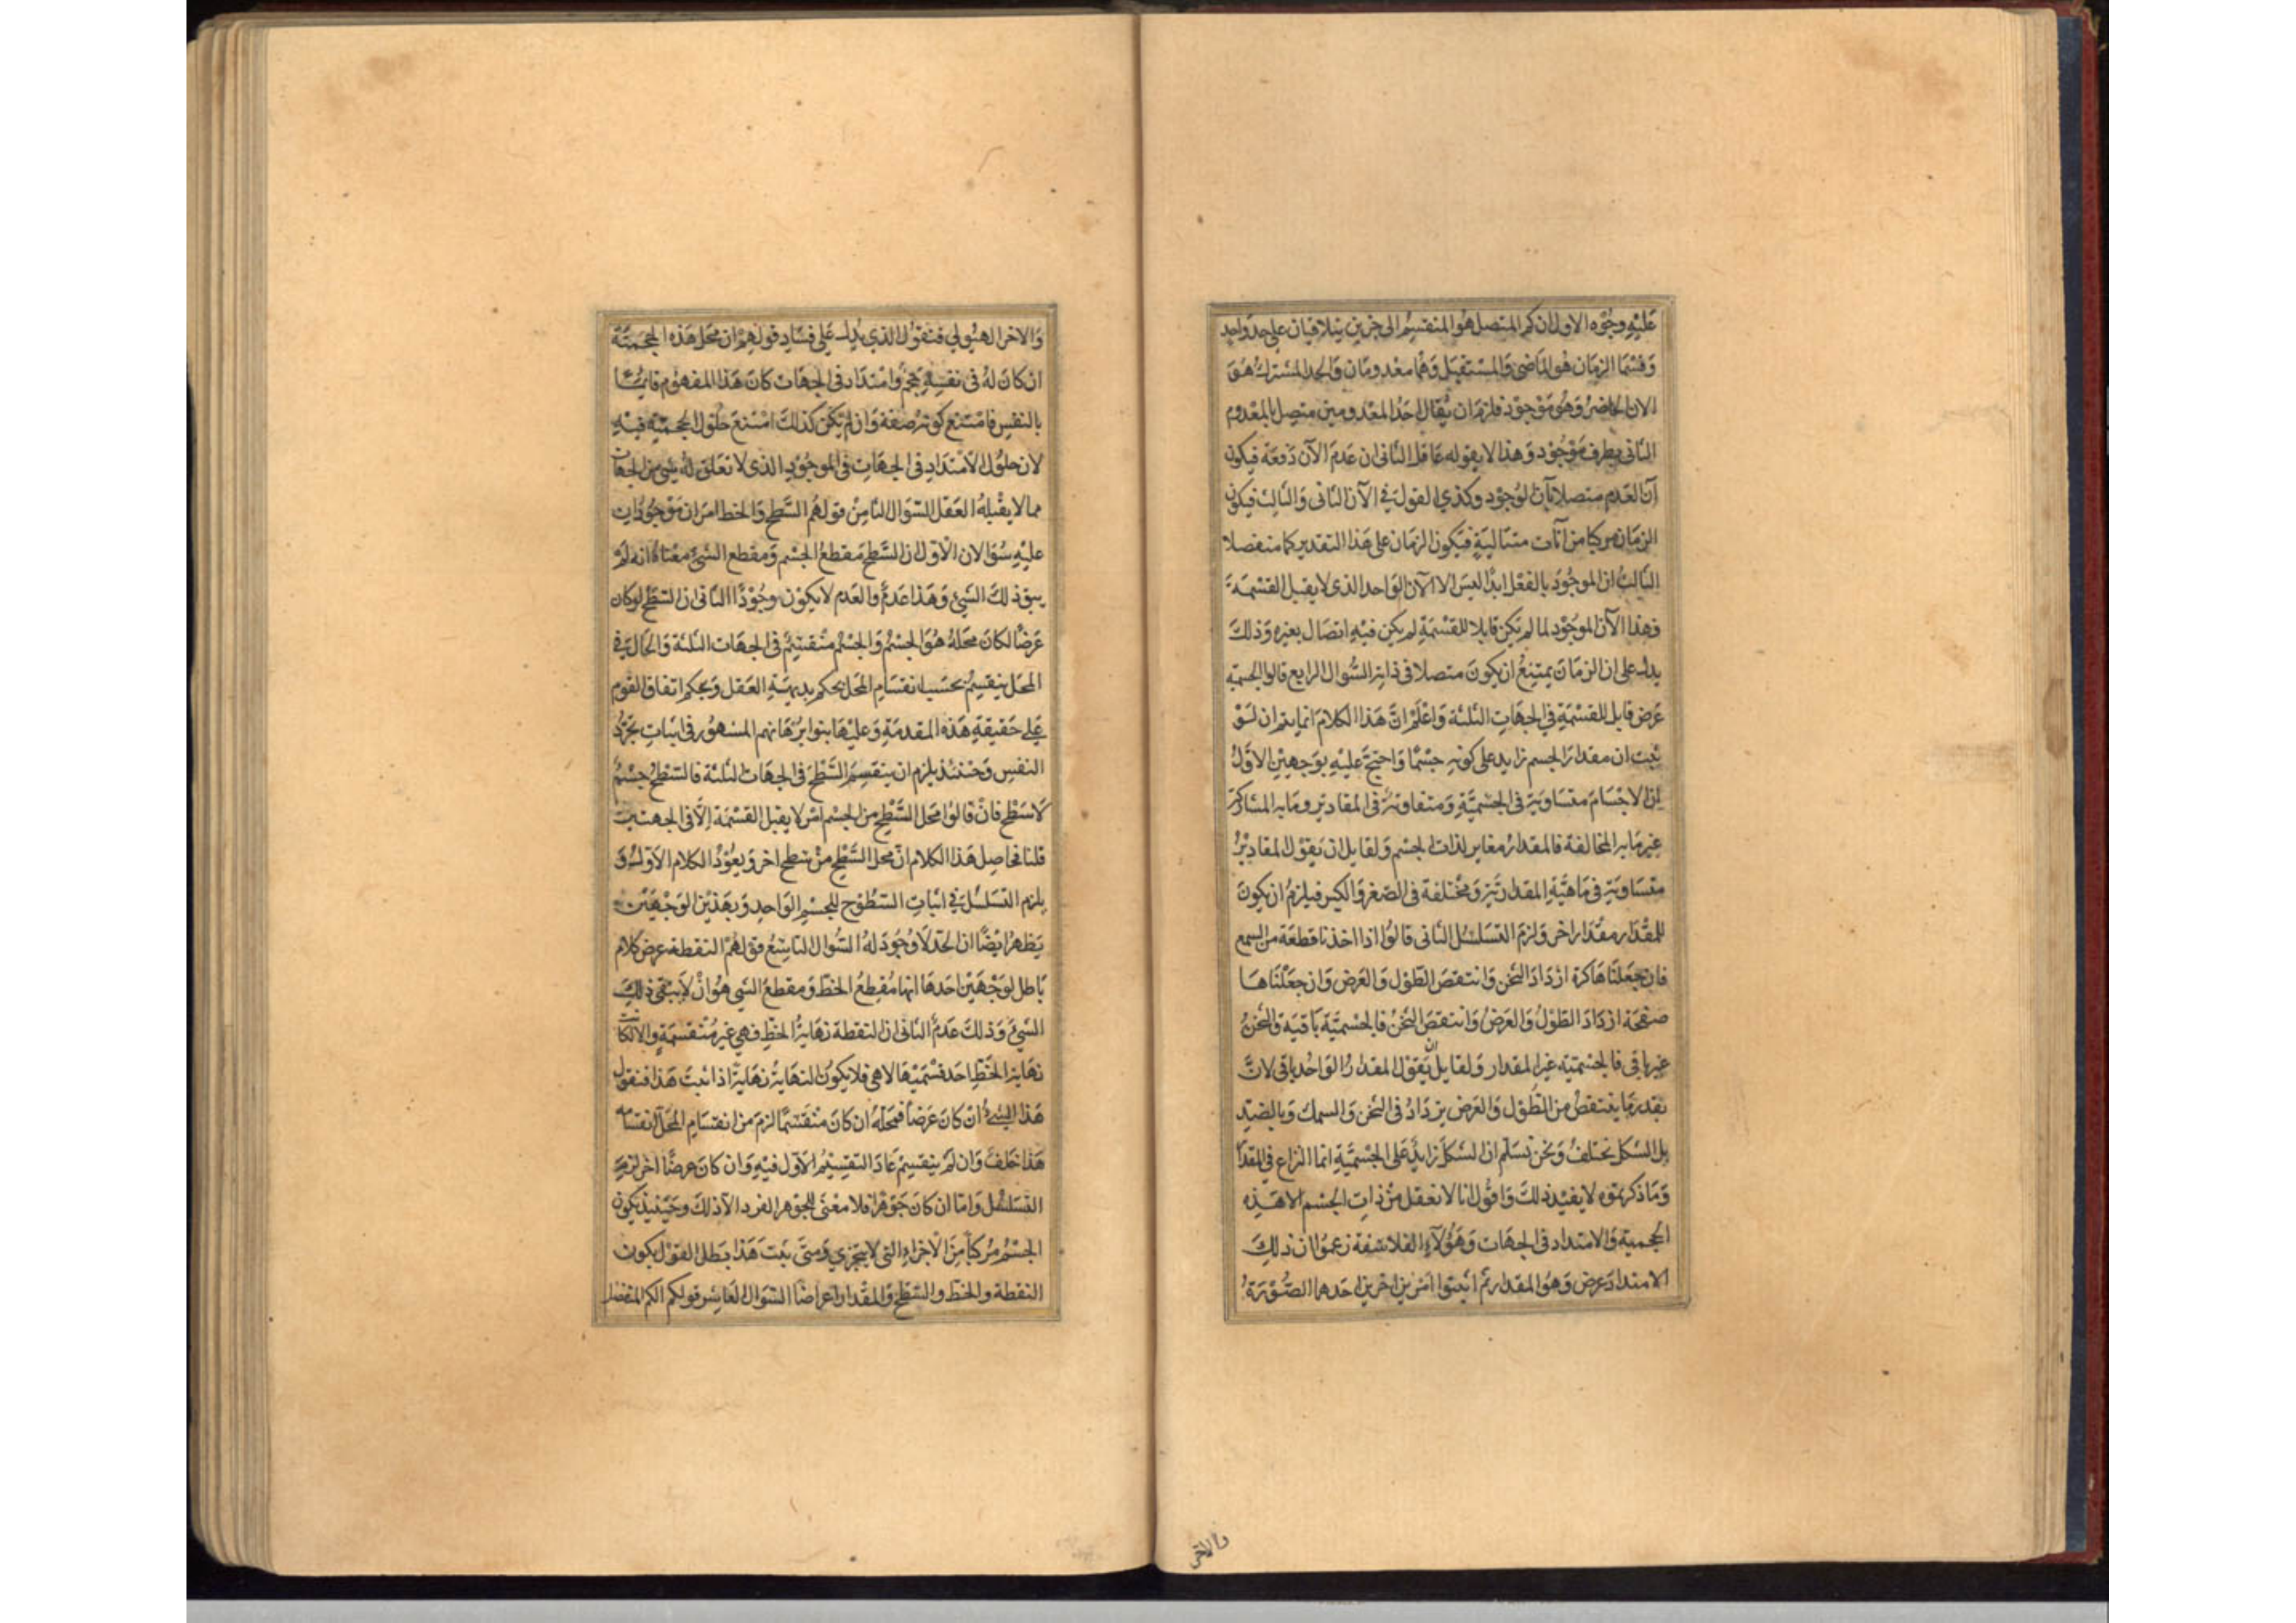 عَلَيْهِ وجُوْه الاول ان كم المتصل هُو المنقسِم الى جزين يتلاقيان على حد وَاحِدٍ
وَقِسْمَا الزمَان هُو المَاضى وَالمسْتقبَل وَهُمَا معْدومَان وَالحدا لمشترك هُوَ
الان الحَاضرُ وَهُو مَوْجوْد فلزمَ ان يُقَال احَدُ المعْدومين متصِل بالمعْدوم
الثانى بطرف مَوْجُوْد وَهذا لا يقوله عَاقل الثانى ان عَدمَ الآن دَفعَة فيكون
آن العَدم متصلا بآن الوُجوْد وكذى القول فى الآن الثانى وَالثالث فيكون
الزمَان مركبا من آنات متتاليَةٍ فيَكون الزمَان على هَذا التقدير كما منفصلا
الثالثُ ان الموجُوْدَ بالفعْل ابدًا ليسَ الا الآن الوَاحد الذى لا يقبل القسْمَة
وَهذا الآن الموجُوْد لما لم يَكن قابلا للقسْمَةِ لم يكن فيْهِ اتصَال بغيره وَذلكَ
يدل على ان الزمَان يمتنِعُ ان يكونَ متصلا فى ذاته السُّوال الرابع قالوا الجسميّة
عَرَض قابل للقسْمَةِ فى الجهَاتِ الثلثة وَاعْلَمْ انَّ هَذا الكلامَ انما يتم ان لَوْ
ثبتَ ان مقدَارَ الجسم زايد على كونه جسْمًا وَاحتجَّ عليْهِ بوَجهيْنِ الاوّلُ
ان الاجْسَامَ متسَاويَة فى الجسْميَّةِ وَمتفاوتةٌ فى المقَادير ومَابه المشَاركة
غير مَابه المخالفة فالمقدَارُ مغاير لذات الجسْم وَلقايل ان يَقوْل المقاديْرُ
متسَاويَة فى مَاهيَّةِ المقدَاريَّة وَمخْتلفة فى الصّغر وَالكبر فيلزمُ ان يكونَ
للمقْدَار مقْدَار اخر وَلزمَ التسَلسُل الثانى قالوُا اذا اخذنا قطعَة من الشمع
فان جعَلنَاهَا كرة ازدَادَ الثخن وَانتقصَ الطوْل وَالعَرض وَان جعَلنَاهَا
صفحَة ازدَادَ الطوْلُ وَالعَرضُ وَانتقصَ الثخنُ فالجسْميَّة بَاقيَة وَالثخنُ
غير باقى فالجسْميّة غير المقدار وَلقايل ان يَقوْل المقدارُ الوَاحد باقى لانَّ
بقدر مَا ينتقصُ من الطُوْل وَالعَرض يزدَادُ فى الثخن وَالسمك وَبالضدِّ
بل الشكل يختلفُ وَنحْن نُسَلّم ان الشكل زايد عَلى الجسْميَّةِ انما النزاع فى المقدَار
وَمَا ذكرتموْه لا يفيْد ذلكَ وَاقوُل انا لا نعقل منْ ذات الجسْم الا هَذِه
الحجميَة وَالامتداد فى الجهَات وَهَؤُلآءِ الفلاسفة زعموُا ان ذلكَ
الامتدادَ عرض وَهُو المقدار ثم اثبتوا امْرين اخرين احَدهما الصُّوْرَةُ
والاخر
وَالاخر الهيُولى فنقوْل الذى يَدل عَلى فسَادِ قولهِم ان محَل هَذه الحجميَّة
ان كان لهُ فى نفسِه حجمٌ وَامْتدَاد فى الجهَات كانَ هَذا المفهوْم قايمًا
بالنفسِ فامْتنع كونه صفة وَان لم يَكن كذلكَ امْتنعَ حلوْل الحجميَّة فيْهِ
لان حلوُل الامْتدَادِ فى الجهَاتِ فى الموجُوْدِ الذى لا تعَلق لهُ بشى من الجهَات
مما لا يقْبلهُ العَقل السّوَال الثامِنْ قولهُم السَّطح وَالخط امرَان مَوْجُوْدَان
عليْهِ سُؤالان الاوّل ان السَّطح مَقطعُ الجسْم وَمقطع الشئ معْناهُ انه لمْ
يبق ذلكَ الشئ وَهَذا عَدمٌ والعَدم لا يكوْن وجُوْدًا الثانى ان السّطح لو كان
عَرَضًا لكانَ محَلهُ هُوَ الجسْمُ وَالجسْم منْقسِمٌ فى الجهَات الثلثة وَالحَال فى
المحَل ينقسِمُ بحسَب انقسَامِ المحَل بحكم بديهَةِ العَقل وَبحكم اتفاق القوْم
عَلى حَقيقةِ هَذه المقدمَةِ وَعليْهَا بنوا برْهَانهم المشهُور فى اثباتِ تجرُّد
النفسِ وَحينئذ يلزم ان ينقسِمَ السَّطحَ فى الجهَات الثلثة فالسّطحُ جسْمٌ
لاسَطح فانْ قالوُا محَل السَّطح من الجسْم امْر لا يقبل القسْمَة اِلَّا فى الجهتيْن
قلنا فحاصِل هَذا الكلام انّ محَل السَّطح منْ سَطح اخر وَيعُوْدُ الكلام الاوّل وَ
يلزم التسَلسُل فى اثباتِ السّطُوْح للجسْمِ الوَاحدِ وَبهَذيْن الوَجْهَيْن
يَظهرُ ايْضًا ان الخط لَا وُجُوْدَ لهُ السُّوال التاسِعُ قولهُمْ النقطة عرض كلام
بَاطل لوَجْهَيْن احَدهَا انها مُقطِعُ الخطّ وَمقطعُ الشى هُو انْ لَا يَبْقى ذلكَ
الشئَ وَذلكَ عَدمٌ الثانى ان النقطة نهَايةُ الخطِّ فهىَ غير مُنْقسمَةٍ والا لكان
نهَاية الخَطِّ احَد قسْميْهَا لاهى فلا يكوْن النهَايةُ نهَايَةً اذا ثبتَ هَذا فنقول
هَذا الشئ ان كانَ عَرَضاً فمحَلّه ان كانَ منْقسمًا لزمَ من انقسَامِ المَحَلّ انقسَامه
هَذا خلفٌ وَان لَمْ ينقسِمْ عَادَ التقسِيْمُ الاَوّل فيْهِ وَان كانَ عرضًا اخر لزمَ
التسَلسُل وَامَّا ان كانَ جَوْهَرًا فلا معْنى للجَوْهر الفرد الا ذلكَ وحيْنئذ يكوْن
الجسْمُ مُركبًا مِنَ الاجْزاءِ التى لا يتجزى وَمتى ثبَتَ هَذا بطل القوْل بكون
النقطة والخط والسّطحُ وَالمقْدار اعراضًا السّوَال العَاشِر قولكم الكم المنفصل